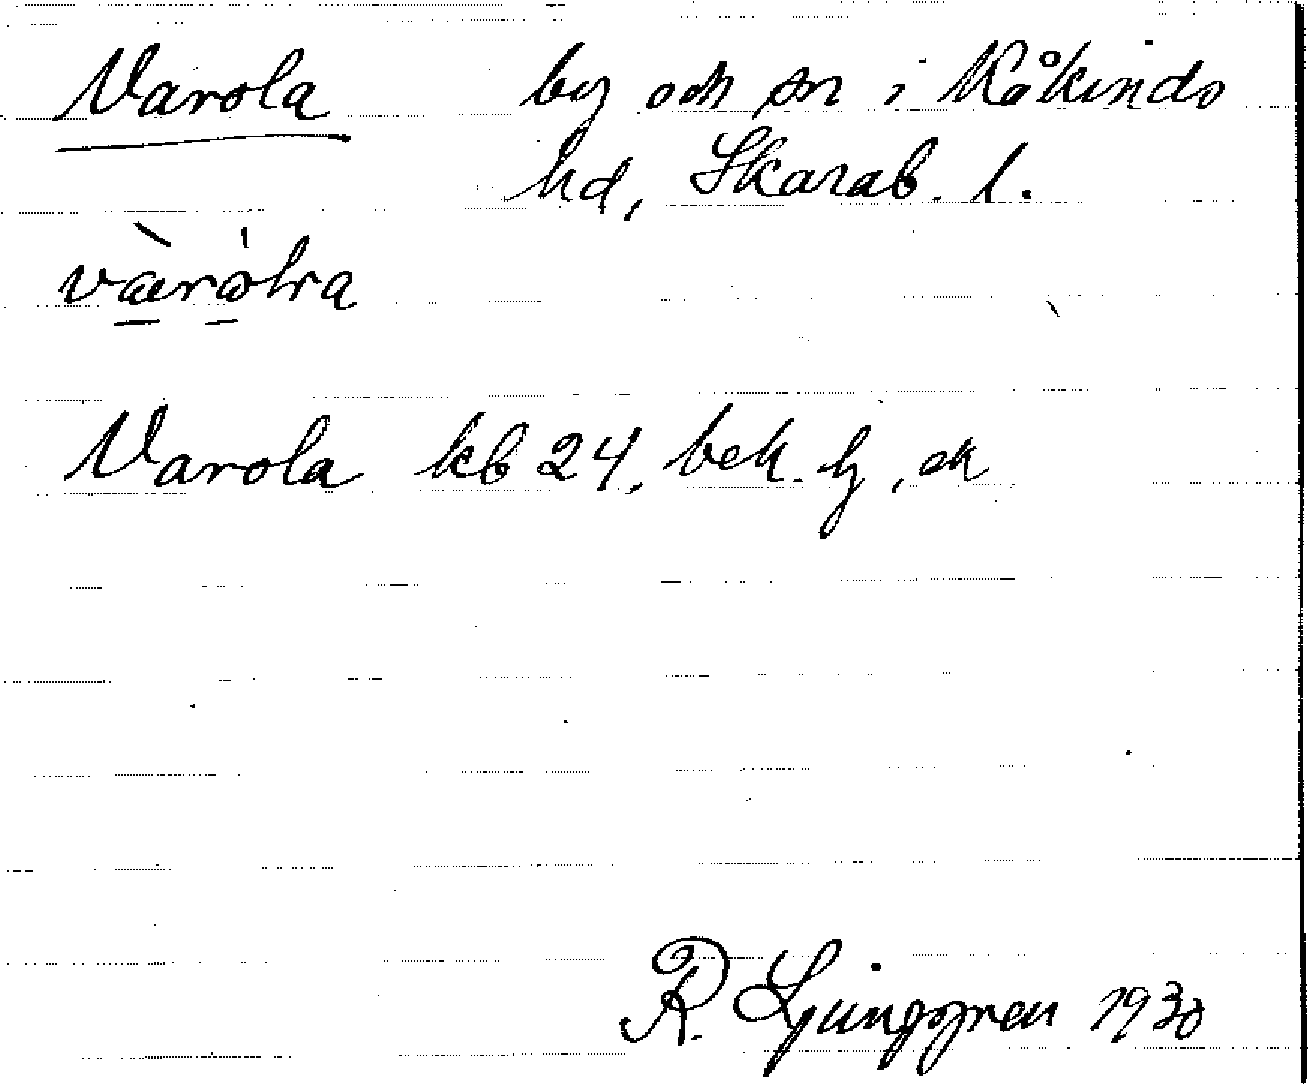 Varola by och sn i Kåkinds
hd, Skarab. l.
Varola kb 24, bek. hj, ek
R. Ljunggren 1930